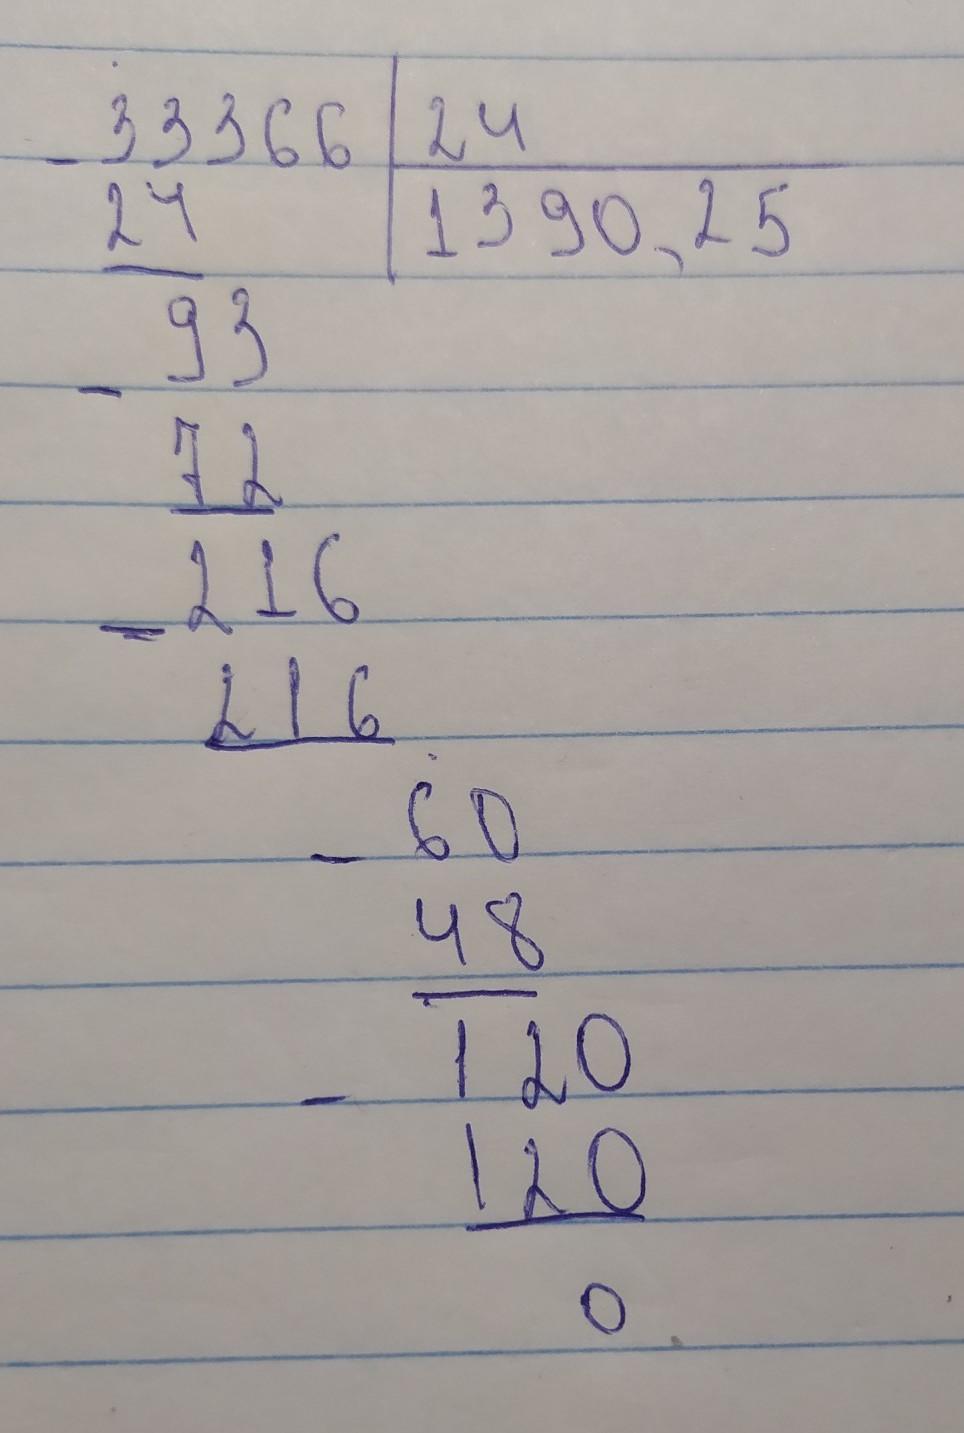 - 33366 | 24
24 | 1390,25
- 93
72
- 216
216
- 60
48
- 120
120
0